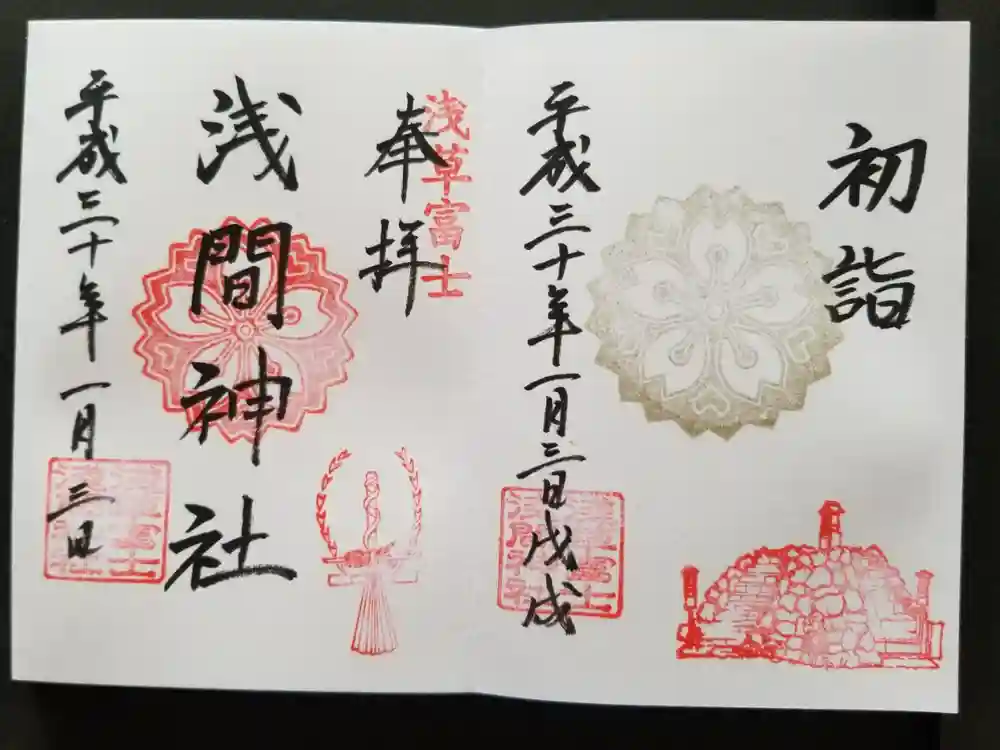 初詣
平成三十年一月三日戊戌
浅草富士
奉拝
浅間神社
平成三十年一月三日